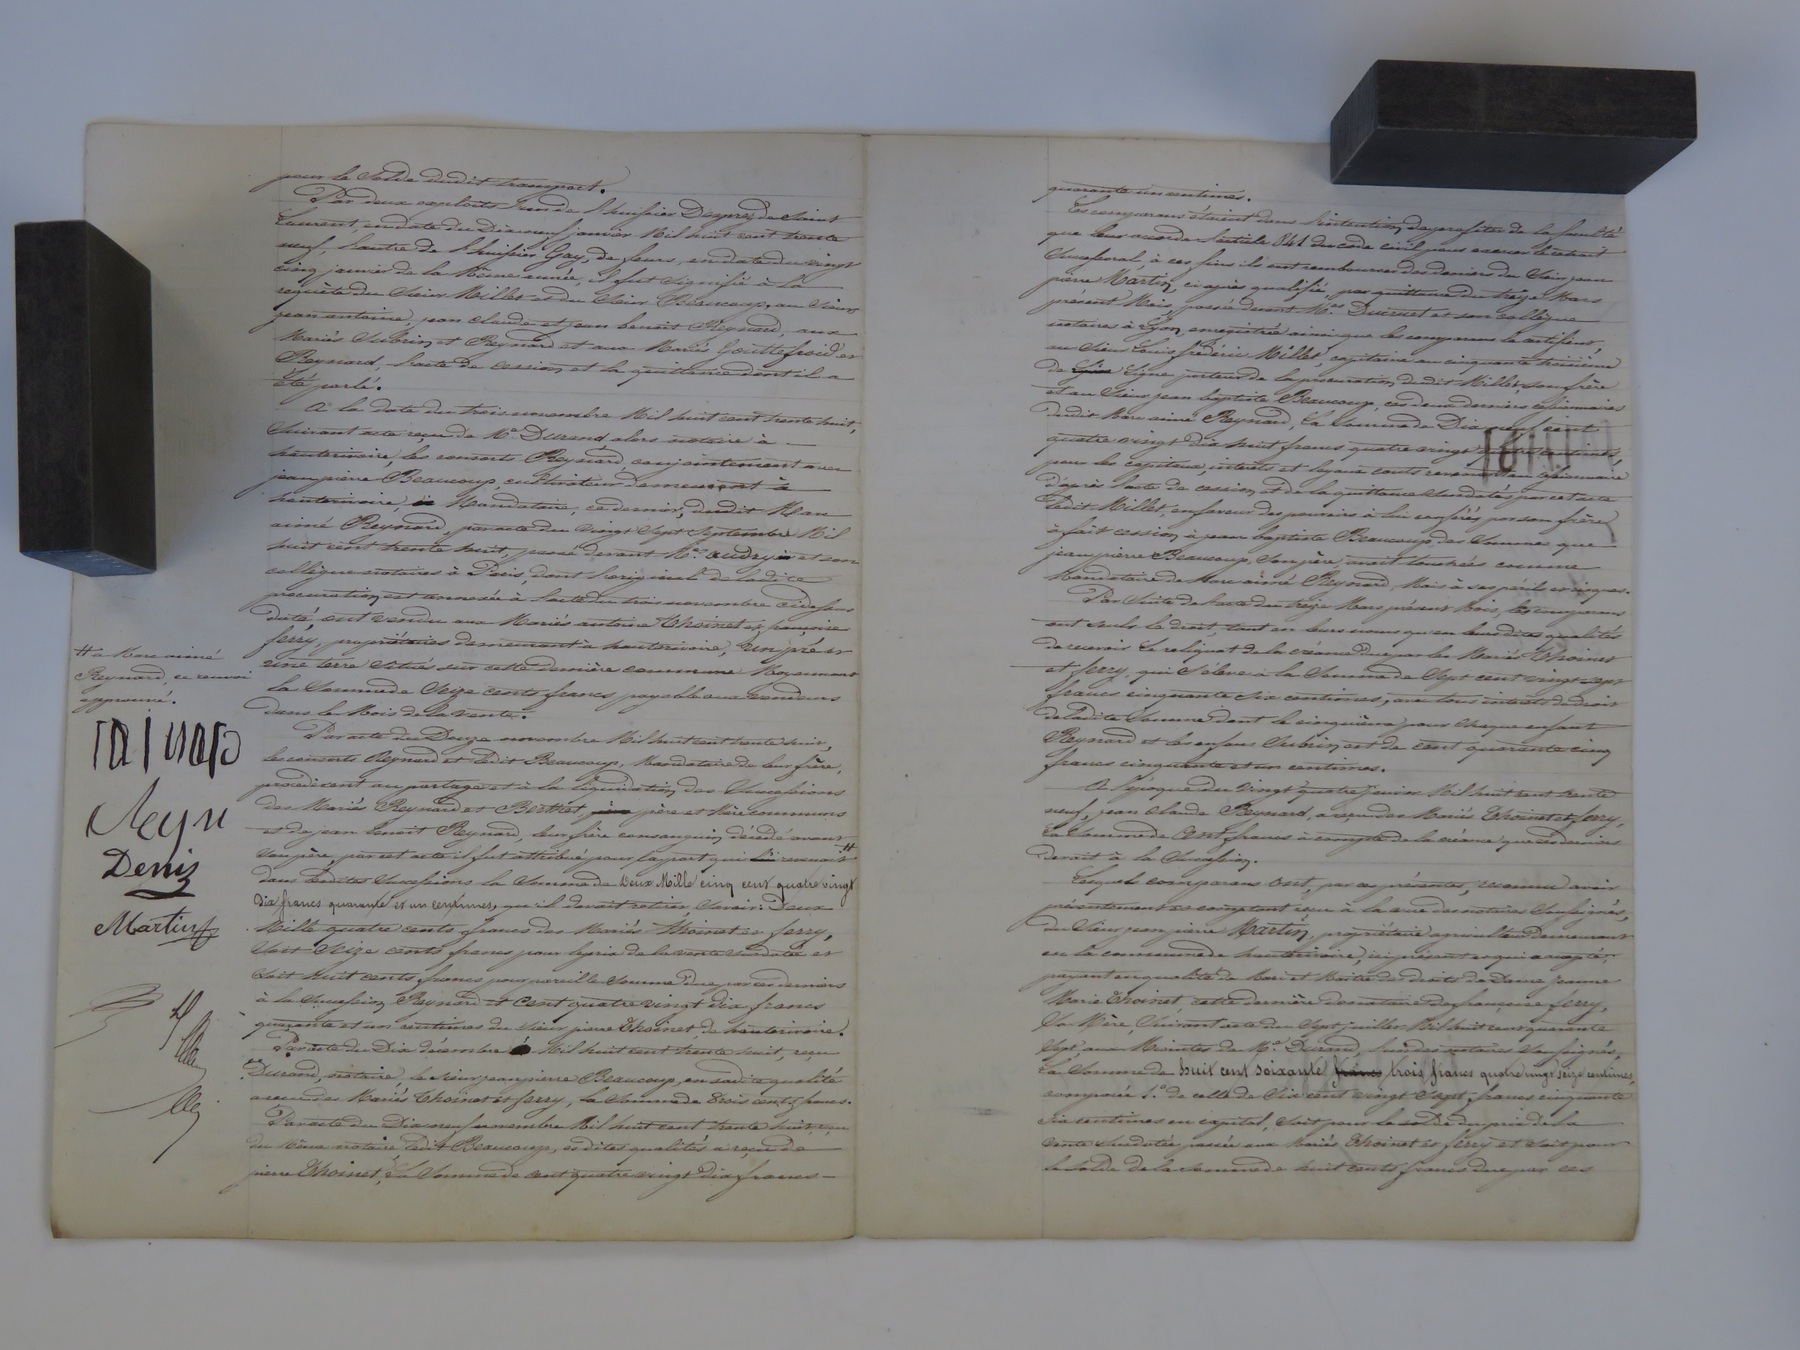 pour le solde dudit transport.
Par deux exploits l'un de l'huissier Duprez de Saint
Laurent, en date du dix neuf janvier Mil huit cent trente
neuf, l'autre de l'huissier Gay, de feurs, en date du vingt
cinq janvier de la Même année, il fut signifié à la
requête du sieur Millet et du sieur Beaucoup, au sieur
jean antoine, jean claude et jean benoit Reynard, aux
Mariés Subrin et Reynard et aux Mariés Gouttefroid et
Reynard, l'acte de cession et la quittance dont il a
été parlé.
A la date du trois novembre Mil huit cent trente huit,
suivant acte reçu de Me Durand alors notaire à
hauterivoire, les consorts Reynard conjointement avec
jean pierre Beaucoup, cultivateur demeurant à
hauterivoire, Mandataire, ce dernier, dudit Marc
aimé Reynard, par acte du vingt sept septembre Mil
huit cent trente huit, passé devant Me audry et son
collègue notaires à Paris, dont l'original de ladite
procuration est annexée à l'acte du trois novembre
daté, ont vendu aux Mariés antoine Thoinet et françoise
ferry, propriétaires demeurant à hauterivoire, un pré et
une terre situés sur cette dernière commune Moyennant
la Somme de Seize cents francs, payable aux vendeurs
dans le Mois de la vente.
Par acte du Douze novembre Mil huit cent trente huit,
les consorts Reynard et ledit Beaucoup, Mandataire de leur frère,
procédèrent au partage et à la liquidation des Successions
des Mariés Reynard et Berthet, père et Mère communs
et de jean benoit Reynard, leur frère consanguin décédé avant
son père, par cet acte il fut attribué pour la part qui revenait #
dans lesdites Successions la Somme de Deux Mille cinq cent quatre vingt
dix francs quarante et un centimes, qu'il devait retirer savoir: Deux
Mille quatre cents francs des Mariés Thoinet et ferry,
soit Seize cents francs pour le prix de la vente susdatée et
soit huit cents francs pour pareille Somme due par ces derniers
à la Succession Reynard et Cent quatre vingt dix francs
quarante et un centimes du sieur pierre Thoinet de hauterivoire.
Par acte du Dix décembre Mil huit cent trente huit, reçu
Me Durand, notaire, le sieur jean pierre Beaucoup, en sadite qualité
a reçu des Mariés Thoinet et ferry, la Somme de trois cents francs.
Par acte du Dix neuf novembre Mil huit cent trente huit, reçu
du Même notaire ledit Beaucoup, esdites qualités a reçu de
pierre Thoinet, la Somme de cent quatre vingt dix francs
# à Marc aimé
Reynard, ce renvoi
approuvé.
Reyn
Denis
Martin
quarante un centimes.
Les comparans étaient dans l'intention de profiter de la faculté
que leur accorde l'article 841 du code civil, pour exercer le retrait
Successoral, à ces fins ils ont remboursé des deniers du sieur jean
pierre Martin, ci après qualifié, par quittance du treize Mars
présent Mois, passée devant Me Ducruet et son collègue
notaires à Lyon, enregistrée ainsi que les comparans le certifient,
au sieur Louis frédéric Millet, capitaine au cinquante troisième
de Ligne porteur de la procuration dudit Millet, son frère
et au Sieur jean baptiste Beaucoup, ces deux derniers cessionnaires
dudit Marc aimé Reynard, la Somme de Dix neuf cent
quatre vingt dix huit francs quatre vingt centimes,
pour les capitaux, intérêts et loyaux coûts revenant au cessionnaire
d'après l'acte de cession et de la quittance susdatés, par cet acte
ledit Millet, en faveur des pouvoirs à lui conférés par son frère
a fait cession à jean baptiste Beaucoup, des Sommes que
jean pierre Beaucoup, son père avait touchées comme
Mandataire de Marc aimé Reynard, Mais à ses périls et risques.
Par Suite de l'acte du treize Mars présent Mois, les comparans
ont seuls le droit, tant en leurs noms qu'en leurs dites qualités
de recevoir le reliquat de la créance due par les Mariés Thoinet
et ferry, qui s'élève à la Somme de Sept cent vingt sept
francs cinquante six centimes, avec tous intérêts de droit
de ladite Somme dont le cinquième pour chaque enfant
Reynard et les enfans Subrin, est de cent quarante cinq
francs cinquante et un centimes.
A l'époque du vingt quatre janvier Mil huit cent trente
neuf, jean claude Reynard, a reçu des Mariés Thoinet et ferry,
la Somme de Cent francs à compte de la créance que ces derniers
devait à la Succession.
Lesquels comparans Ont, par ces présentes, reconnu avoir
présentement et comptant reçu à la vue des notaires Soussignés,
du Sieur jean pierre Martin, propriétaire agriculteur demeurant
en la commune de hauterivoire, ici présent et qui accepte,
payant en qualité de Mari et Maître des droits de Dame jeanne
Marie Thoinet, cette dernière donataire de françoise ferry,
Sa Mère, Suivant acte du Sept juillet Mil huit cent quarante
Sept aux Minutes de Me Durand, l'un des notaires Soussignés,
la Somme de huit cent soixante trois francs quatre vingt seize centimes,
composée 1° de celle de Six cent vingt Sept francs cinquante
six centimes en capital, soit pour le solde du prix de la
vente susdatée, passée aux Mariés Thoinet et ferry et soit pour
le solde de la somme de huit cents francs due par ces